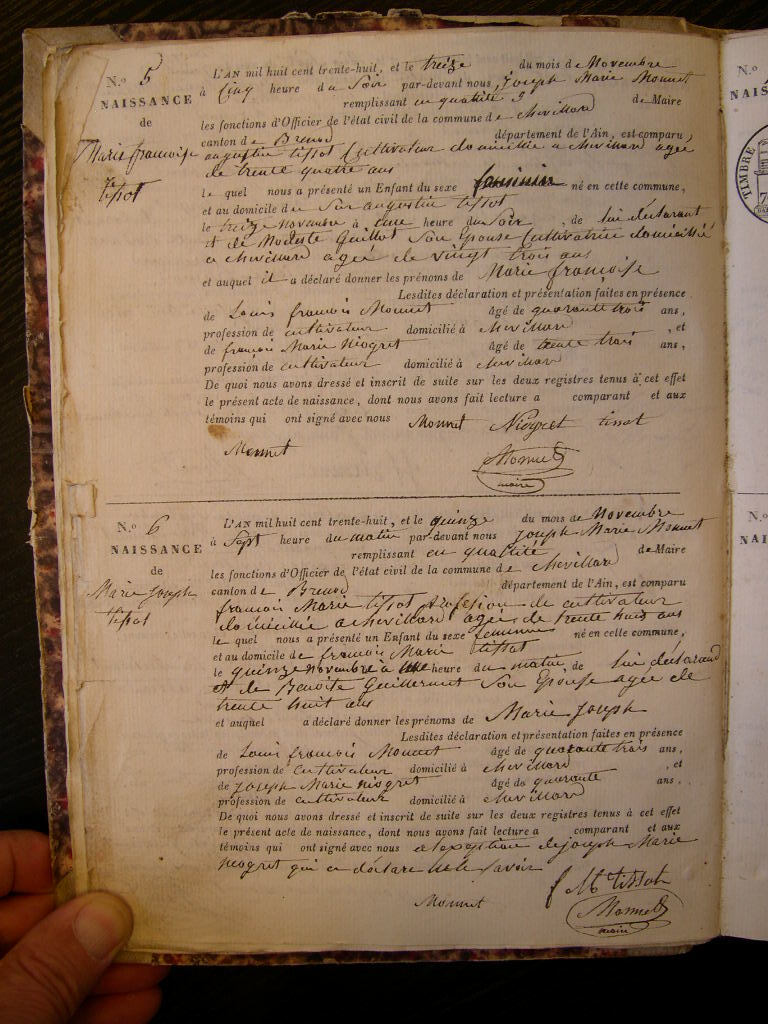 N.º 5
NAISSANCE
de
Marie françoise
tissot
L'AN mil huit cent trente-huit, et le treize du mois de Novembre
à Cinq heure du Soir par-devant nous, Joseph Marie Monnet
remplissant en qualité de Maire
les fonctions d'Officier de l'état civil de la commune de chevillard
canton de Brenod département de l'Ain, est comparu,
augustin tissot Cultivateur domicillie a chevillard agée
de trente quatre ans
le quel nous a présenté un Enfant du sexe né en cette commune,
et au domicile du Sir augustin tissot
le treize novembre à une heure du Soir, de lui declarant
et de Modeste Guillot Son Epouse Cultivatrice domicillié
a chevillard agée de vingt trois ans
et auquel il a déclaré donner les prénoms de Marie françoise
Lesdites déclaration et présentation faites en présence
de Louis françois Monnet âgé de quarante trois ans,
profession de cultivateur domicilié à chevillard, et
de françois Marie Niogret âgé de trente trois ans,
profession de cultivateur domicilié à chevillard
De quoi nous avons dressé et inscrit de suite sur les deux registres tenus à cet effet
le présent acte de naissance, dont nous avons fait lecture a comparant et aux
témoins qui ont signé avec nous Monnet Niogret tissot
Monnet
Monnet
maire
N.º 6
NAISSANCE
de
Marie Joseph
tissot
L'AN mil huit cent trente-huit, et le quinze du mois de Novembre
à Sept heure du matin par-devant nous Joseph Marie Monnet
remplissant en qualité de Maire
les fonctions d'Officier de l'état civil de la commune de chevillard
canton de Brenod département de l'Ain, est comparu
francois Marie tissot profession de cultivateur
domicillie a chevillard agée de trente huit ans
le quel nous a présenté un Enfant du sexe né en cette commune,
et au domicile de francois Marie tissot
le quinze novembre à heure du matin, de lui declarand
et de Benoite Guillermet Son Epouse agee de
trente huit ans
et auquel a déclaré donner les prénoms de Marie Joseph
Lesdites déclaration et présentation faites en présence
de Louis francois Monnet âgé de quarante trois ans,
profession de cultivateur domicilié à chevillard, et
de Joseph Marie niogret âgé de quarante ans.
profession de cultivateur domicilié à chevillard
De quoi nous avons dressé et inscrit de suite sur les deux registres tenus à cet effet
le présent acte de naissance, dont nous avons fait lecture a comparant et aux
témoins qui ont signé avec nous a lexception de joseph Marie
niogret qui a déclare ne le savoir
f Mie tissot
Monnet
Monnet
maire
N.º
NAIS
TIMBRE
N.º
NAIS